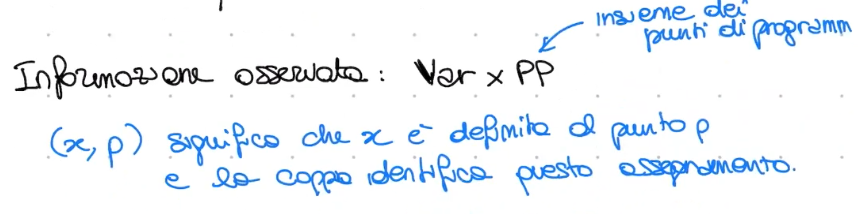 insieme dei
punti di programm
Informazione osservata : Var x PP
(x, p) significa che x è definita al punto p
e la coppia identifica questo assegnamento.